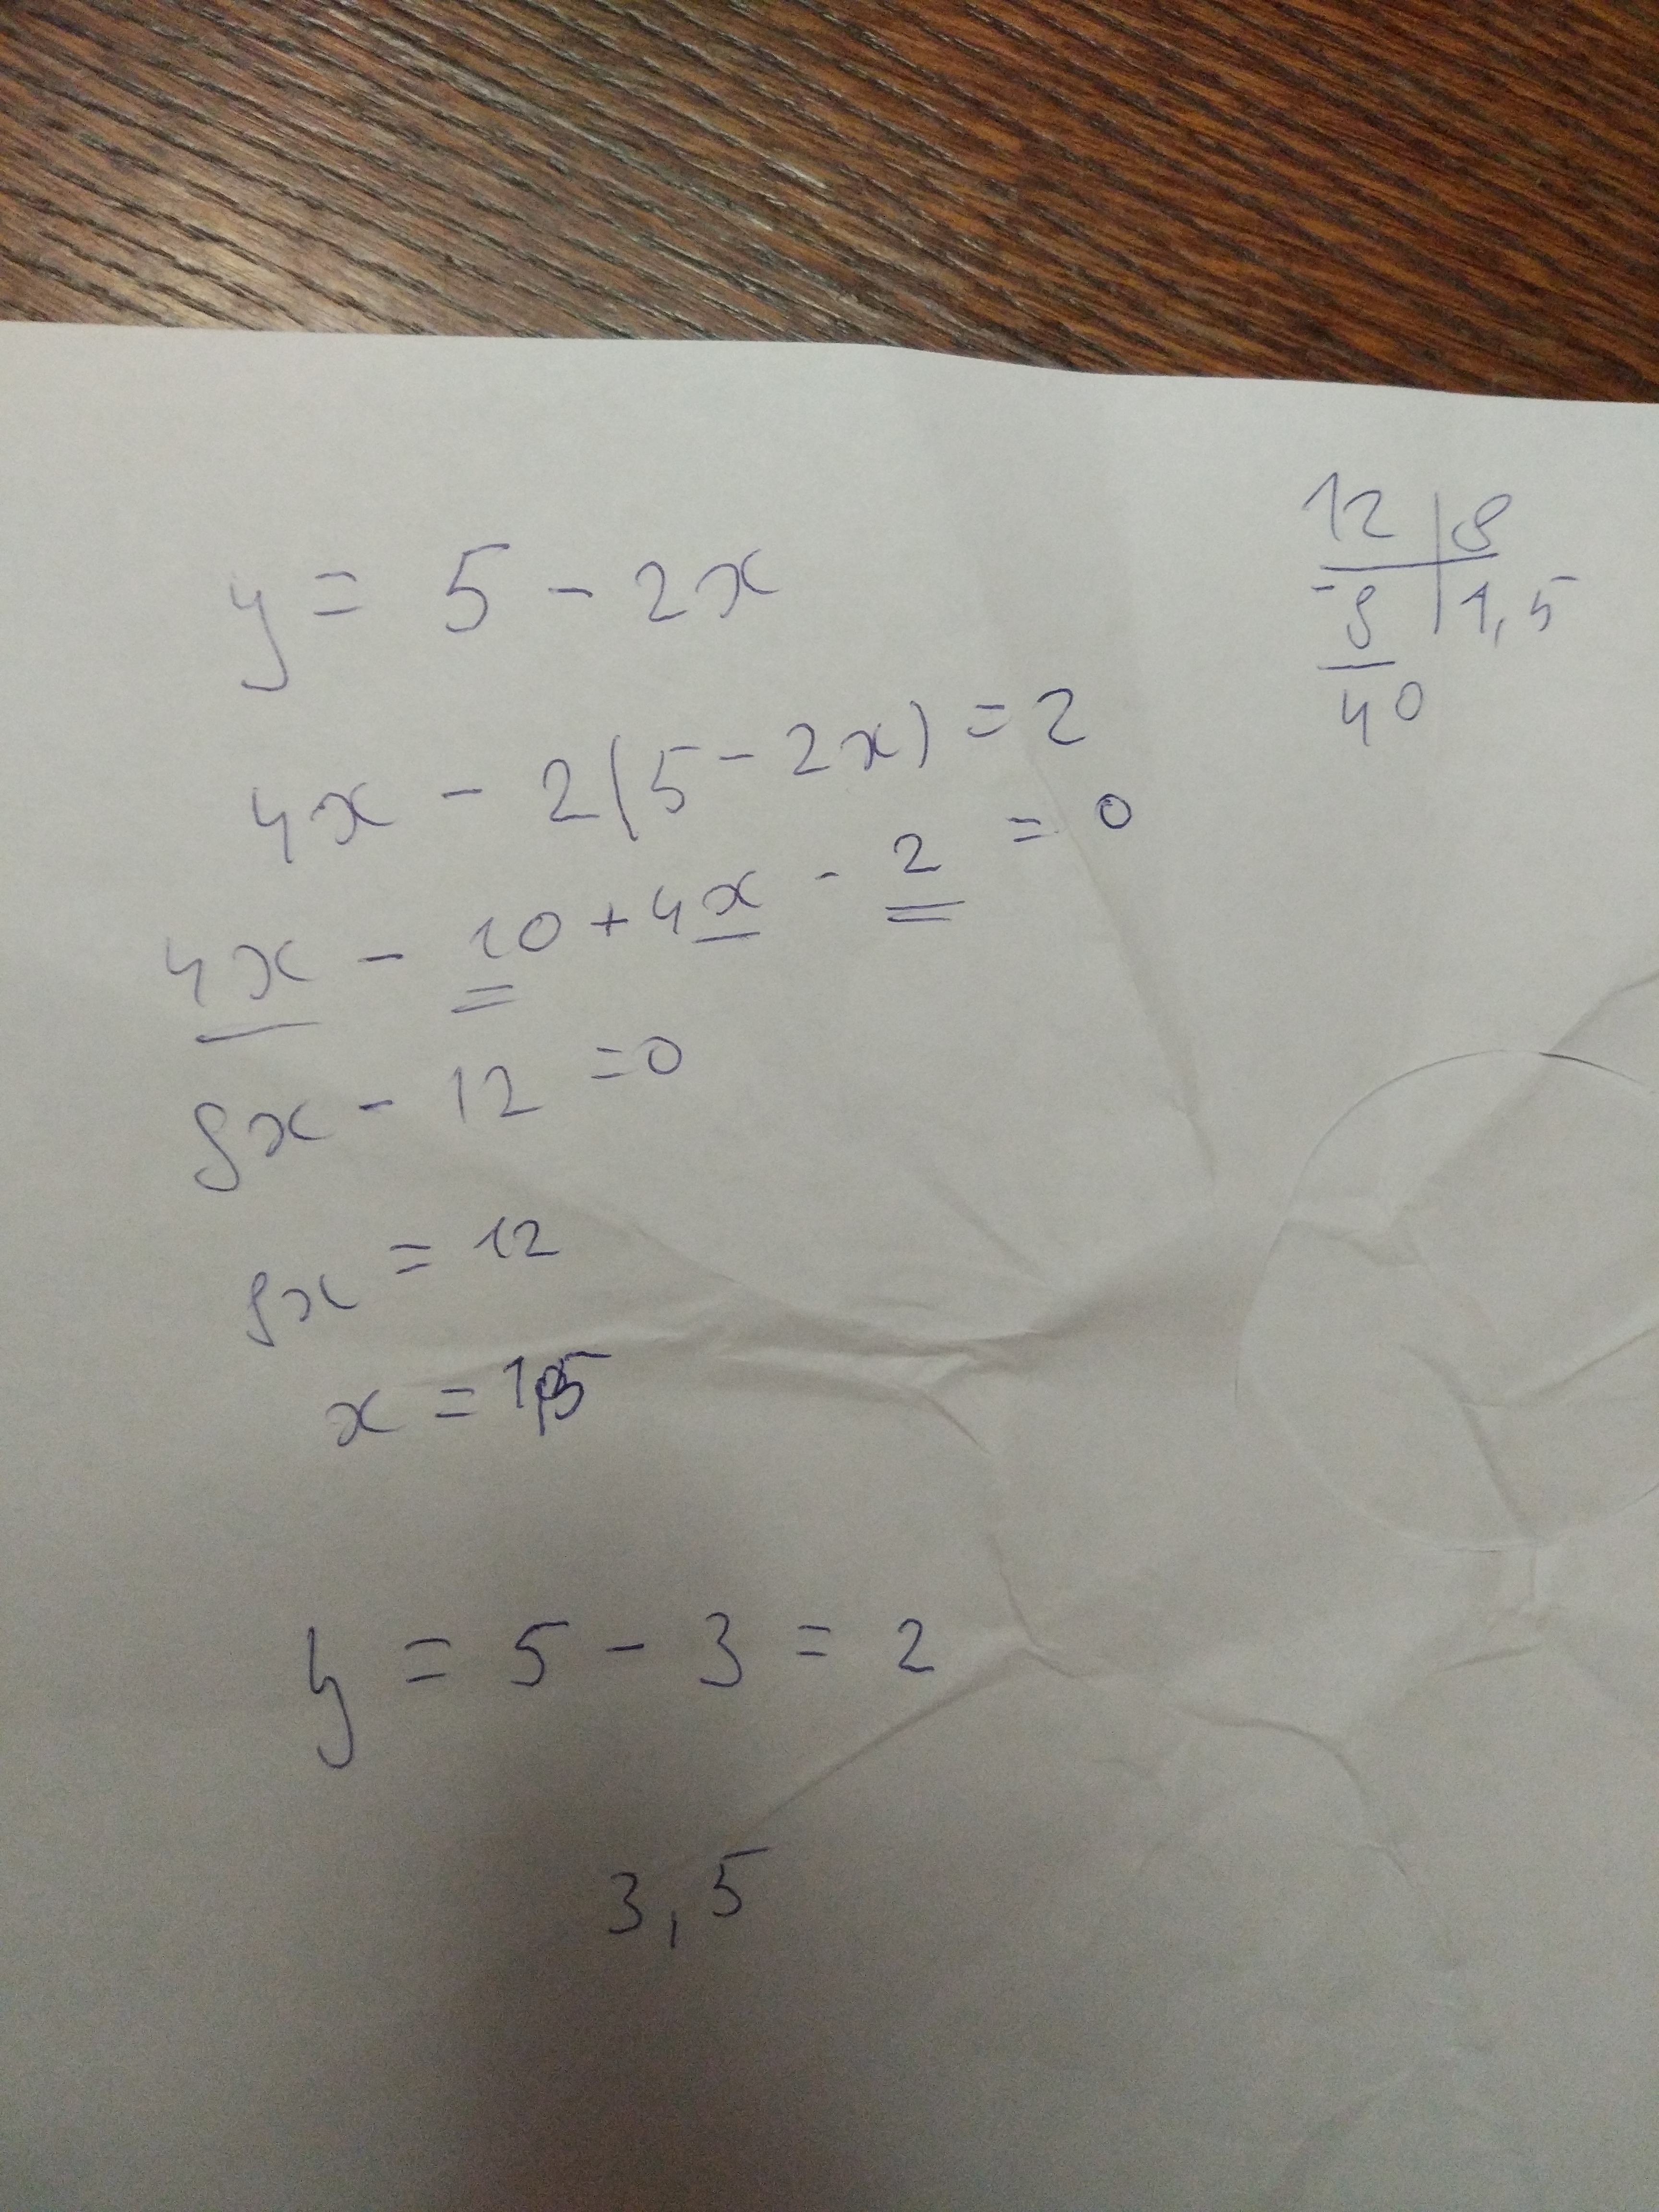 y = 5 - 2x
4x - 2(5 - 2x) = 2
4x - 10 + 4x - 2 = 0
8x - 12 = 0
8x = 12
x = 1,5
y = 5 - 3 = 2
3,5
12 | 8
-8 | 1,5
40